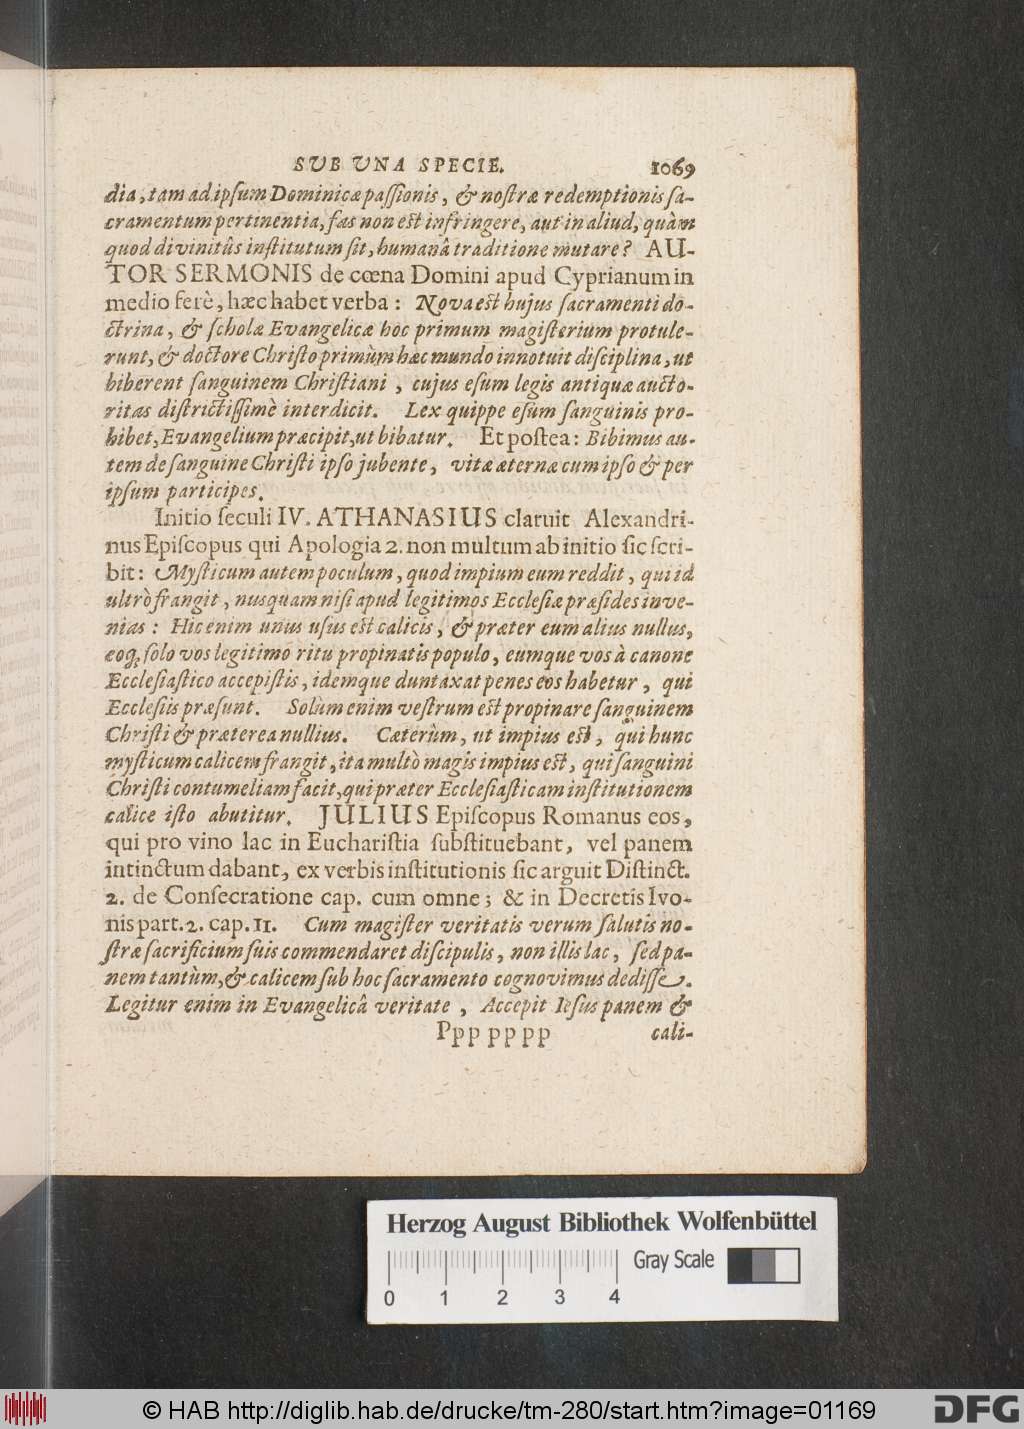 SUB UNA SPECIE. 1069
dia, tam ad ipſum Dominicæ paſſionis, & noſtræ redemptionis ſa-
cramentum pertinentia, fas non eſt infringere, aut in aliud, quàm
quod divinitùs inſtitutum ſit, humanâ traditione mutare? AU-
TOR SERMONIS de cœna Domini apud Cyprianum in
medio ferè, hæc habet verba: Nova eſt hujus ſacramenti do-
ctrina, & ſcholæ Evangelicæ hoc primum magiſterium protule-
runt, & doctore Chriſto primùm hæc mundo innotuit diſciplina, ut
biberent ſanguinem Chriſtiani, cujus eſum legis antiquæ aucto-
ritas diſtrictiſſimè interdicit. Lex quippe eſum ſanguinis pro-
hibet, Evangelium præcipit, ut bibatur. Et poſtea: Bibimus au-
tem de ſanguine Chriſti ipſo jubente, vitæ æternæ cum ipſo & per
ipſum participes.
Initio ſeculi IV. ATHANASIUS claruit Alexandri-
nus Epiſcopus qui Apologia 2. non multum ab initio ſic ſcri-
bit: Myſticum autem poculum, quod impium eum reddit, qui id
ultrò frangit, nusquam niſi apud legitimos Eccleſiæ præſides inve-
nias: Hic enim unius uſus eſt calicis, & præter eum alius nullus,
eoq; ſolo vos legitimo ritu propinatis populo, eumque vos à canone
Eccleſiaſtico accepiſtis, idemque duntaxat penes eos habetur, qui
Eccleſiis præſunt. Solùm enim veſtrum eſt propinare ſanguinem
Chriſti & præterea nullius. Cæterùm, ut impius eſt, qui hunc
myſticum calicem frangit, ita multò magis impius eſt, qui ſanguini
Chriſti contumeliam facit, qui præter Eccleſiaſticam inſtitutionem
calice iſto abutitur. JULIUS Epiſcopus Romanus eos,
qui pro vino lac in Euchariſtia ſubſtituebant, vel panem
intinctum dabant, ex verbis inſtitutionis ſic arguit Diſtinct.
2. de Conſecratione cap. cum omne; & in Decretis Ivo-
nis part. 2. cap. 11. Cum magiſter veritatis verum ſalutis no-
ſtræ ſacrificium ſuis commendaret diſcipulis, non illis lac, ſed pa-
nem tantùm, & calicem ſub hoc ſacramento cognovimus dediſſe.
Legitur enim in Evangelicâ veritate, Accepit Ieſus panem &
Ppp pp pp cali-
Herzog August Bibliothek Wolfenbüttel
Gray Scale
0 1 2 3 4
© HAB http://diglib.hab.de/drucke/tm-280/start.htm?image=01169 DFG